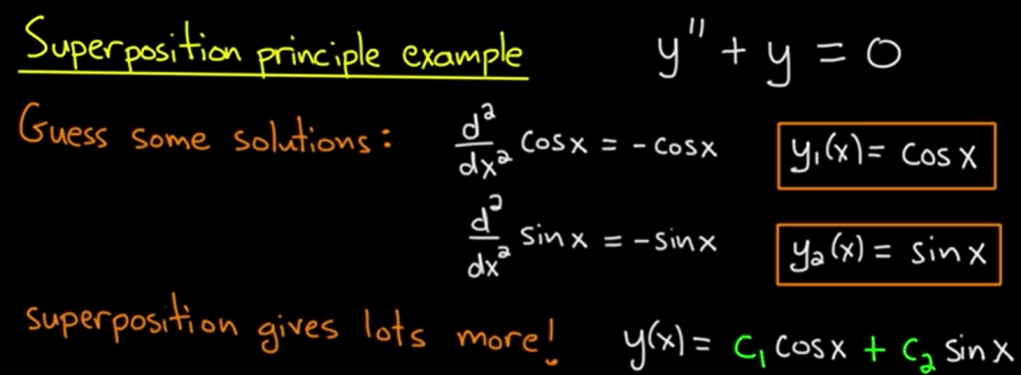 Superposition principle example y'' + y = 0
Guess some solutions: d²/dx² cosx = - cosx y₁(x) = cosx
d²/dx² sinx = - sinx y₂(x) = sinx
superposition gives lots more! y(x) = C₁ cosx + C₂ sinx